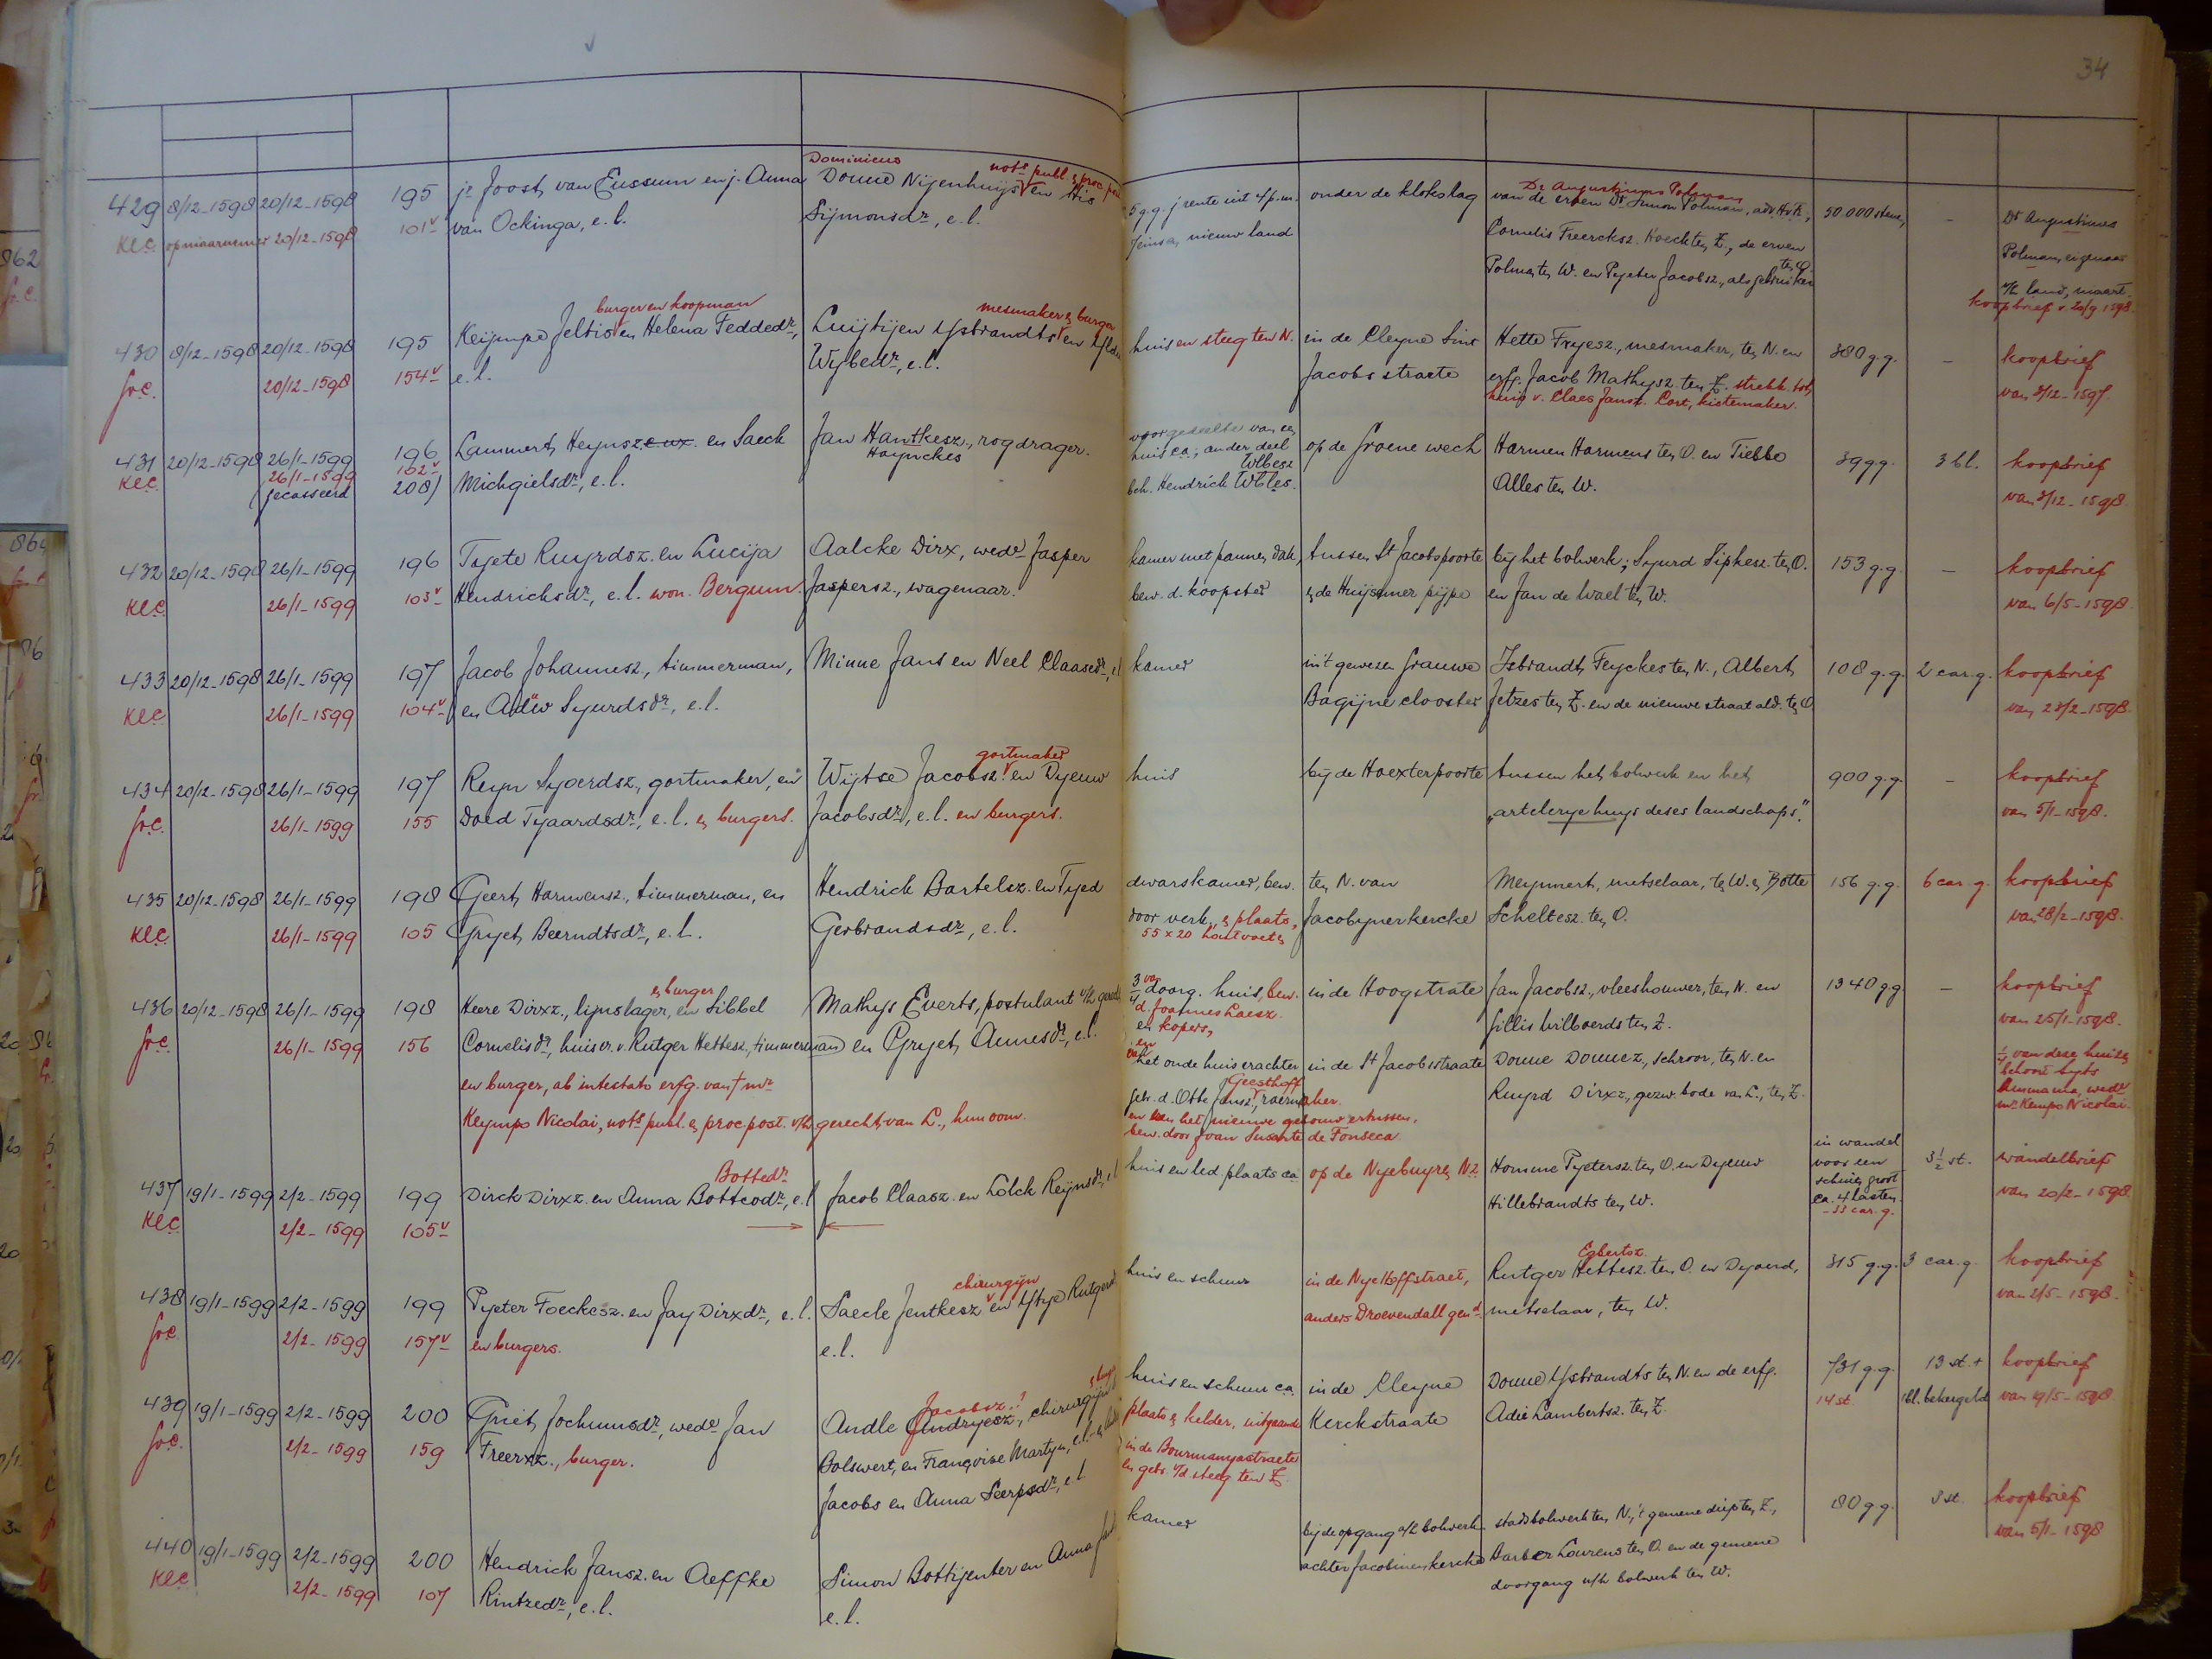 34
429 8/12-1598 20/12-1598 195 jr Joost van Eussum en j. Anna
Dominicus nots publ. & proc. post.
Douue Nijenhuijs en His
5 g.g. jrente uit 4 p.m. onder de klokslag
Dr Augustinus Polman
van de erven Dr Simon Polman, adv. H.v.Fr., 50.000 steen, – Dr Augustinus
KLC. 20/12-1598 101v van Ockinga, e.l. Sijmonsdr, e.l.
nieuw land
Cornelis Freercksz. Hoeck ten Z., de erven
Polman, eigenaar
Polman ten W. en Pyeter Jacobsz., als gebruiker ten O.
v/h land, maart.
koopbrief v. 20/9 1598.
burger en koopman mesmaker & burger
430 8/12-1598 20/12-1598 195 Keijmpe Jeltis en Helena Feddedr, Luijtijen Ysbrandts en
huis en steeg ten N. in de Cleyne Sint Hette Fryesz., mesmaker, ten N. en 380 g.g. – koopbrief
Gr.C. 20/12-1598 154v e.l. Wybedr, e.l.
Jacobs straete erfg. Jacob Mathysz. ten Z. strekk. tot van 8/12-1597.
huis v. Claes Jansz. Cort, kistemaker.
431 20/12-1598 26/1-1599 196 Lammert Heynsz. e ux. en Saeck Jan Hantkesz., rogdrager.
Haynckes
voorgedeelte van een
huis ca; ander deel op de Groene wech Harmen Harmens ten O. en Tiebbo 39 g.g. 3 bl. koopbrief
KLC. 26/1-1599 102v
gecasseerd 208) Michgielsdr, e.l.
Wlbesz
beh. Hendrick Wbles. Alles ten W. van 8/12-1598.
432 20/12-1598 26/1-1599 196 Tyete Ruyrdsz. en Lucija Aalcke Dirx, wede Jasper
kamer met pannen dak, tussen St Jacobspoorte bij het bolwerk; Syurd Sipkesz. ten O. 153 g.g. – koopbrief
KLC. 26/1-1599 103v Hendricksdr, e.l. won. Bergum. Jaspersz., wagenaar.
bew. d. koopster & de Huijsumer pijpe en Jan de Wael ten W. van 6/5-1598.
433 20/12-1598 26/1-1599 197 Jacob Johannesz., timmerman, Minne Jans en Neel Claasedr, e.l.
kamer in 't gewezen Grauwe Isbrandt Feyckes ten N., Albert 108 g.g. 2 car.g. koopbrief
KLC. 26/1-1599 104v en Aduw Syurdsdr, e.l.
Bagijne clooster Jetzes ten Z. en de nieuwe straat ald. ten O. van 28/2-1598.
gortmaker
434 20/12-1598 26/1-1599 197 Reyn Syoerdsz., gortmaker, en Wijtse Jacobsz. en Dyeuw
huis bij de Hoexterpoorte tussen het bolwerk en het 900 g.g. – koopbrief
Gr.C. 26/1-1599 155 Doed Tyaardsdr, e.l. & burgers. Jacobsdr, e.l. en burgers.
„artelerye huys deses landschaps”. van 5/1-1598.
435 20/12-1598 26/1-1599 198 Geert Harmensz., timmerman, en Hendrick Bartelsz. en Tyed
dwarskamer, bew. ten N. van Meynnert, metselaar, ten W. & Botte 156 g.g. 6 car.g. koopbrief
KLC. 26/1-1599 105 Gryet Beerndtsdr, e.l. Gerbrandsdr, e.l.
door verk., & plaats, Jacobynerkercke Scheltesz. ten O. van 28/2-1598.
55 x 20 houtvoeten
& burger
436 20/12-1598 26/1-1599 198 Keere Dirxz., lijnslager, en Sibbel Mathys Everts, postulant v/h gerecht
3/4 van doorg. huis, bew. in de Hoogstrate Jan Jacobsz., vleeshouwer, ten N. en 1340 g.g. – koopbrief
d. Joannes Laesz. Gillis Wilboerds ten Z. van 25/1-1598.
en kopers,
Gr.C. 26/1-1599 156 Cornelisdr, huisvr. v. Rutger Hettesz, timmerman en Gryet Annesdr, e.l.
en
het oude huis erachter in de St Jacobsstraate Douue Douuez, schroor, ten N. en 1/4 van deze huizen
behoort Syds
Geesthoff
en burger, ab intestato erfg. van † mr
geb. d. Otte Jansz, raermaker. Ruyrd Dirxz, gezw. bode van L., ten Z. Ammama, wede
mr Kempo Nicolai.
Keympo Nicolai, nots publ. & proc. post. v/h gerecht van L., hun oom.
en van het nieuwe gebouw ertussen,
bew. door Joan Susante de Fonseca.
Bottedr
437 19/1-1599 2/2-1599 199 Dirck Dirxz. en Anna Bottcodr, e.l. Jacob Claasz. en Lolck Reijnsdr, e.l.
huis en led. plaats ca op de Nyebuyren N.z. Homme Pyetersz. ten O. en Dyeuw
in wandel
voor een 3½ st. wandelbrief
schuit, groot
ca. 4 lasten.
– 33 car.g.
KLC. 2/2-1599 105v Hillebrandts ten W. van 20/2-1598.
chirurgijn
438 19/1-1599 2/2-1599 199 Pyeter Foeckesz. en Jay Dirxdr, e.l. Saecle Jentkesz en Ytye Rutgersdr
huis en schuur in de Nye Hoffstraet,
Egbertsz.
Rutger Hettesz. ten O. en Dyoerd, 315 g.g. 3 car.g. koopbrief
Gr.C. 2/2-1599 157v en burgers. e.l.
anders Droevendall gend. metselaar, ten W. van 2/5-1598.
439 19/1-1599 2/2-1599 200 Griet Jochumsdr, wede Jan
Jacobsz.!
Andle Andryesz., chirurgijn
huis en schuur ca. in de Cleyne Douue Ysbrandts ten N. en de erfg. 731 g.g. 13 st. + koopbrief
Gr.C. 2/2-1599 159 Freerxz., burger. Bolswert, en Françoise Martyn, e.l.
plaats & kelder, uitgaande Kerckstraate Adie Lambertsz. ten Z. 14 st. 1 bl. bekergeld van 19/5-1598
in de Bourmanyastraete
en gebr. v/d steeg ten Z.
Jacobs en Anna Seerpsdr, e.l.
440 19/1-1599 2/2-1599 200 Hendrick Jansz. en Aeffke Simon Bottijenter en Anna
kamer bij de opgang o/h bolwerk stadsbolwerk ten N., 't gemene diep ten Z., 80 g.g. 3 st. koopbrief
KLC. 2/2-1599 107 Rintzedr, e.l. e.l.
achter Jacobinerkercke Barber Lourens ten O. en de gemene van 5/1-1598
doorgang o/h bolwerk ten W.